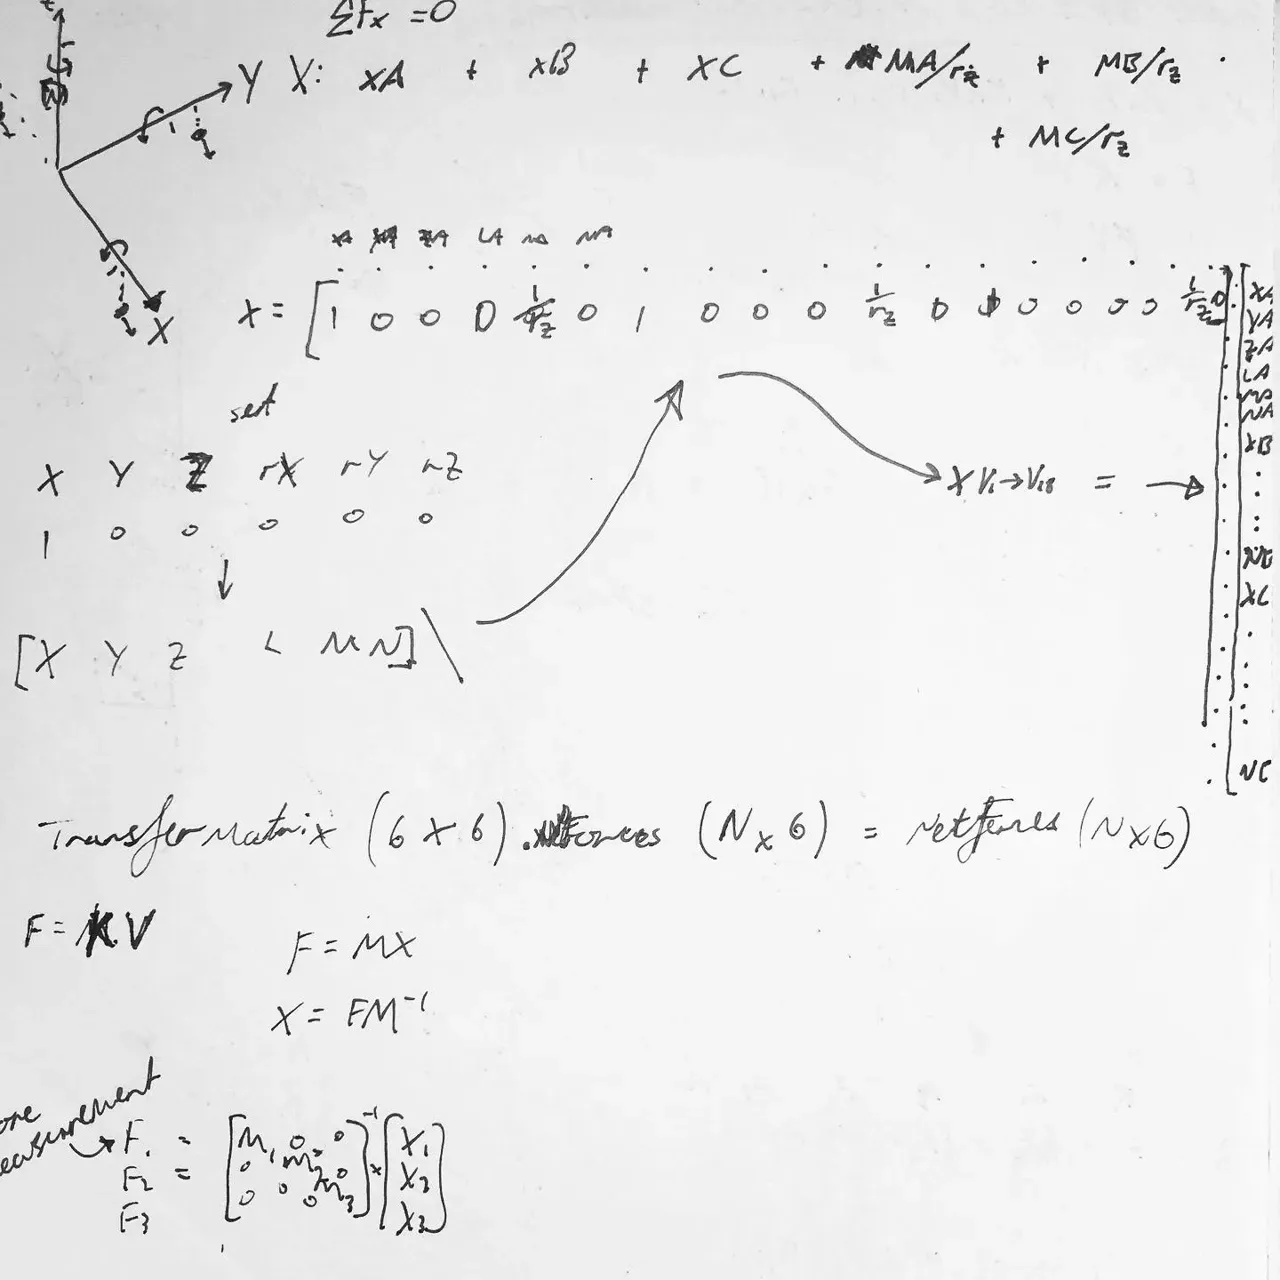 ΣFx = 0
Y X: XA + XB + XC + MA/rz + MB/rz
+ MC/rz
XA YA ZA LA MA NA
X = [ 1 0 0 0 1/rz 0 1 0 0 0 1/rz 0 1 0 0 0 0 1/rz 0 ]
X
XA
YA
ZA
LA
MA
NA
XB
set
X Y Z rX rY rZ
1 0 0 0 0 0
X V1→V18 = →
XC
[X Y Z L M N] \
NC
Transfer Matrix (6 X 6) . forces (N x 6) = net forces (N x 6)
F = K V
F = MX
X = FM⁻¹
one
measurement
F1 = [M1 0 0
F2 = 0 M2 0
F3 0 0 M3]⁻¹ x [X1 X2 X3]